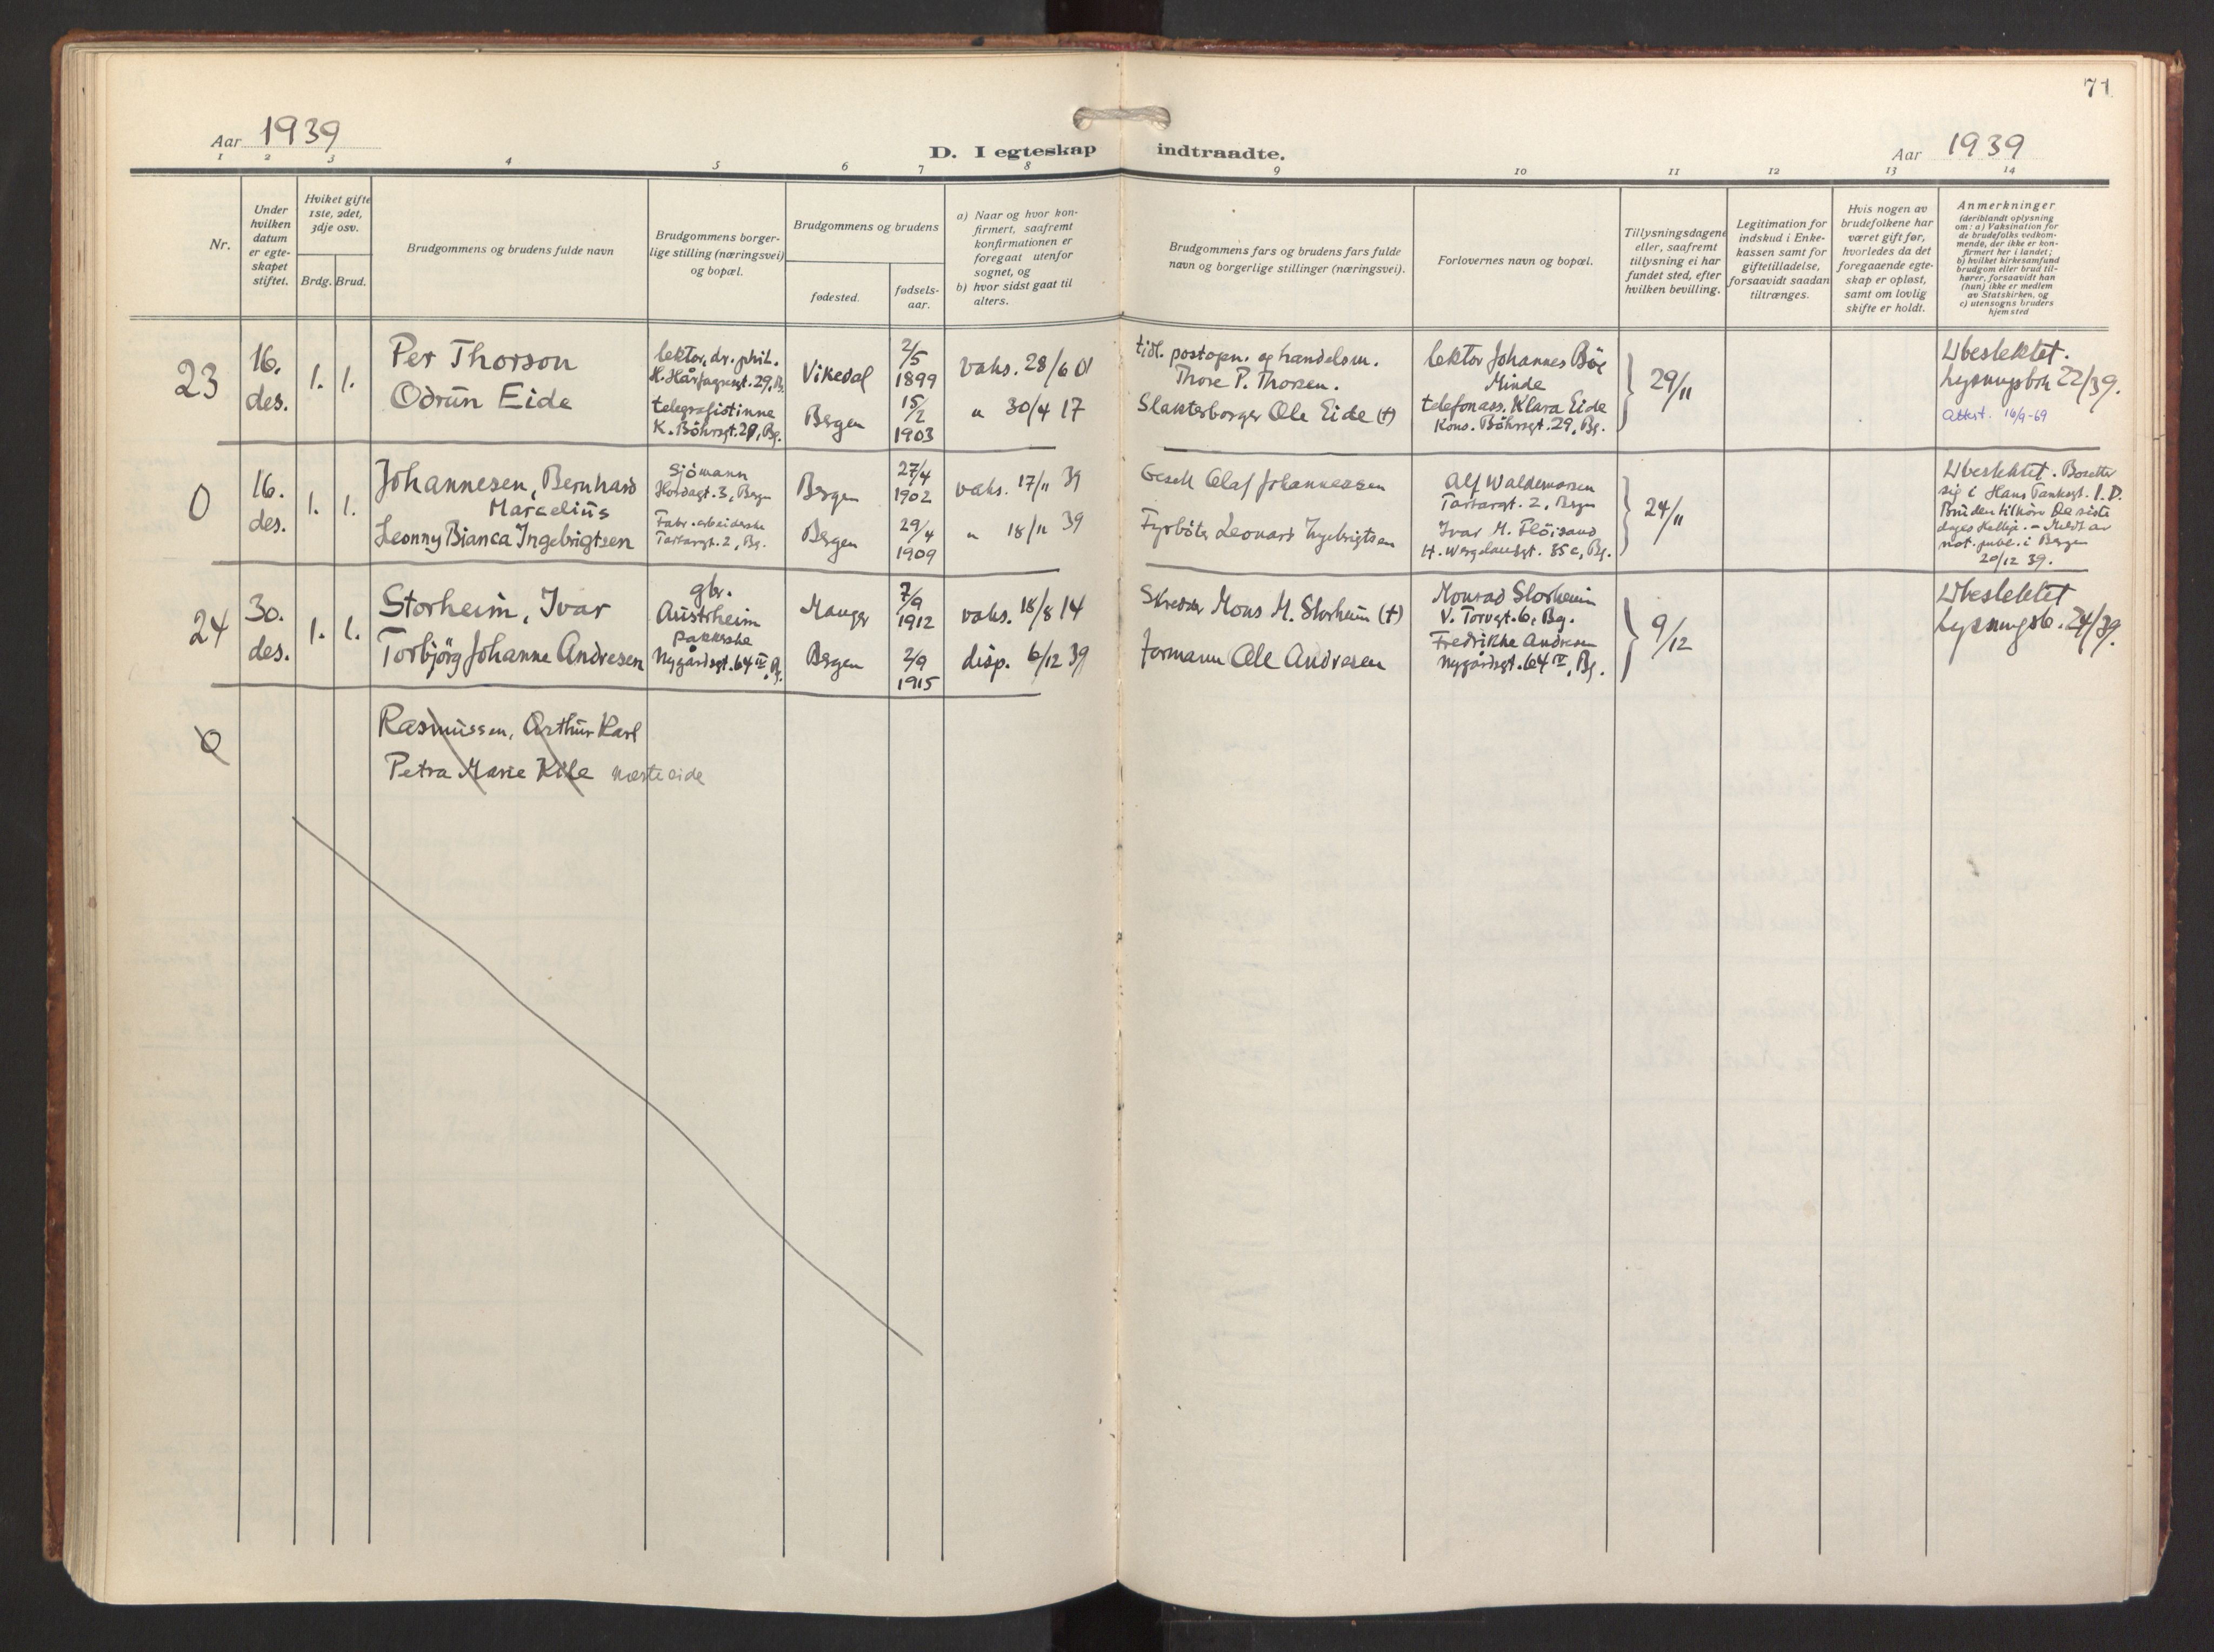 71
Aar 1939
D. I egteskap indtraadte.
Aar 1939
1 2 3 4 5 6 7 8 9 10 11 12 13 14
Nr.
Under
hvilken
datum
er egte-
skapet
stiftet.
Hvilket gifte
1ste, 2det,
3dje osv.
Brdg. Brud.
Brudgommens og brudens fulde navn
Brudgommens borger-
lige stilling (næringsvei)
og bopæl.
Brudgommens og brudens
fødested.
fødsels-
aar.
a) Naar og hvor kon-
firmert, saafremt
konfirmationen er
foregaat utenfor
sognet, og
b) hvor sidst gaat til
alters.
Brudgommens fars og brudens fars fulde
navn og borgerlige stillinger (næringsvei).
Forlovernes navn og bopæl.
Tillysningsdagene
eller, saafremt
tillysning ei har
fundet sted, efter
hvilken bevilling.
Legitimation for
indskud i Enke-
kassen samt for
giftetilladelse,
forsaavidt saadan
tiltrænges.
Hvis nogen av
brudefolkene har
været gift før,
hvorledes da det
foregaaende egte-
skap er opløst,
samt om lovlig
skifte er holdt.
Anmerkninger
(deriblandt oplysning
om: a) Vaksination for
de brudefolks vedkom-
mende, der ikke er kon-
firmert her i landet;
b) hvilket kirkesamfund
brudgom eller brud til-
hører, forsaavidt han
(hun) ikke er medlem
av Statskirken, og
c) utensogns bruders
hjemsted
23
16.
des.
1. 1.
Per Thorson
Odrun Eide
lektor, dr. phil.
H. Hårfagresgt. 29, B.
telegrafistinne
K. Böhrsgt. 29, Bg.
Vikedal
Bergen
2/5
1899
15/2
1903
vaks. 28/6 01
" 30/4 17
tidl. postopn. og handelsm.
Thore P. Thorsen.
Slakterborger Ole Eide (†)
lektor Johannes Böe
Minde
telefonass. Klara Eide
Kons. Böhrsgt. 29, Bg.
29/11
Ubeslektet.
Lysningsbok 22/39.
Attest. 16/9-69
0
16.
des.
1. 1.
Johannesen, Bernhard
Marcelius
Leonny Bianca Ingebrigtsen
Sjömann
Hordagt. 3, Bergen
Fabr. arbeiderske
Tartargt. 2, Bg.
Bergen
Bergen
27/4
1902
29/4
1909
vaks. 17/11 39
" 18/11 39
Olaf Johannessen
Fyrböter Leonard Ingebrigtsen
Alf Waldemarsen
Tartargt. 2, Bergen
Ivar M. Flöisand
H. Wergelandsgt. 35 c, Bg.
24/11
Ubeslektet. Bosetter
sig i Hans Tanksgt. 1. D.
Bruden tilhörer De siste
dages Hellige. - Meldt av
not. publ. i Bergen
20/12 39.
24
30.
des.
1. 1.
Storheim, Ivar
Torbjörg Johanne Andresen
gbr.
Austrheim
pakkerske
Nygårdsgt. 64 IV, B.
Manger
Bergen
7/9
1912
2/9
1915
vaks. 18/8 14
disp. 6/12 39
Skredder Mons M. Storheim (†)
Formann Ole Andresen
Monrad Storheim
V. Torvgt. 6, Bg.
Fredrikke Andresen
Nygårdsgt. 64 IV, Bg.
9/12
Ubeslektet
Lysningsb. 24/39.
0
Rasmussen, Arthur Karl
Petra Marie Kile næste side